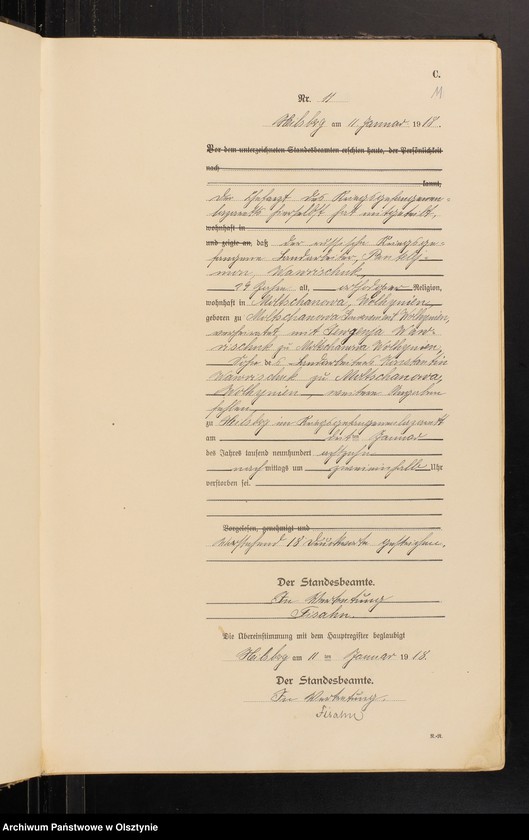 C.
11
Nr. 11
Heilsberg am 11 Januar 1918.
Vor dem unterzeichneten Standesbeamten erschien heute, der Persönlichkeit
nach
kannt,
Der Chefarzt des Kriegsgefangenen-
lazaretts hierselbst hat mitgeteilt,
wohnhaft in
und zeigte an, daß der russische Kriegsge-
fangene Landarbeiter,
mon, Wawrischuk,
29 Jahre alt, orthodoxer Religion,
wohnhaft in Moltschanowa, Wolhynien,
geboren zu Moltschanowa Wolhynien,
verheiratet mit Waw-
rischuk zu Moltschanowa Wolhynien,
Sohn des Landarbeiters Konstantin
Wawrischuk zu Moltschanowa,
Wolhynien, weitere Angaben
fehlen,
zu Heilsberg im Kriegsgefangenenlazarett
am Januar
des Jahres tausend neunhundert achtzehn
nachmittags um Uhr
verstorben sei.
Vorgelesen, genehmigt und
Vorstehend 18 Druckworte gestrichen.
Der Standesbeamte.
In Vertretung
Fisahn.
Die Übereinstimmung mit dem Hauptregister beglaubigt
Heilsberg am 11 ten Januar 1918.
Der Standesbeamte.
In Vertretung.
Fisahn
R.-R.
Archiwum Państwowe w Olsztynie